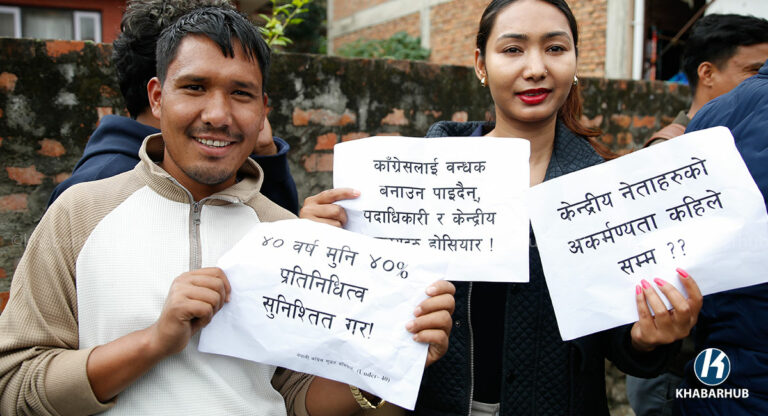 काँग्रेसलाई बन्धक
बनाउन पाइदैन,
पदाधिकारी र केन्द्रीय
होसियार !
केन्द्रीय नेताहरुको
अकर्मण्यता कहिले
सम्म ??
४० वर्ष मुनि ४०%
प्रतिनिधित्व
सुनिश्तित गर!
(Under-40)
KHABARHUB